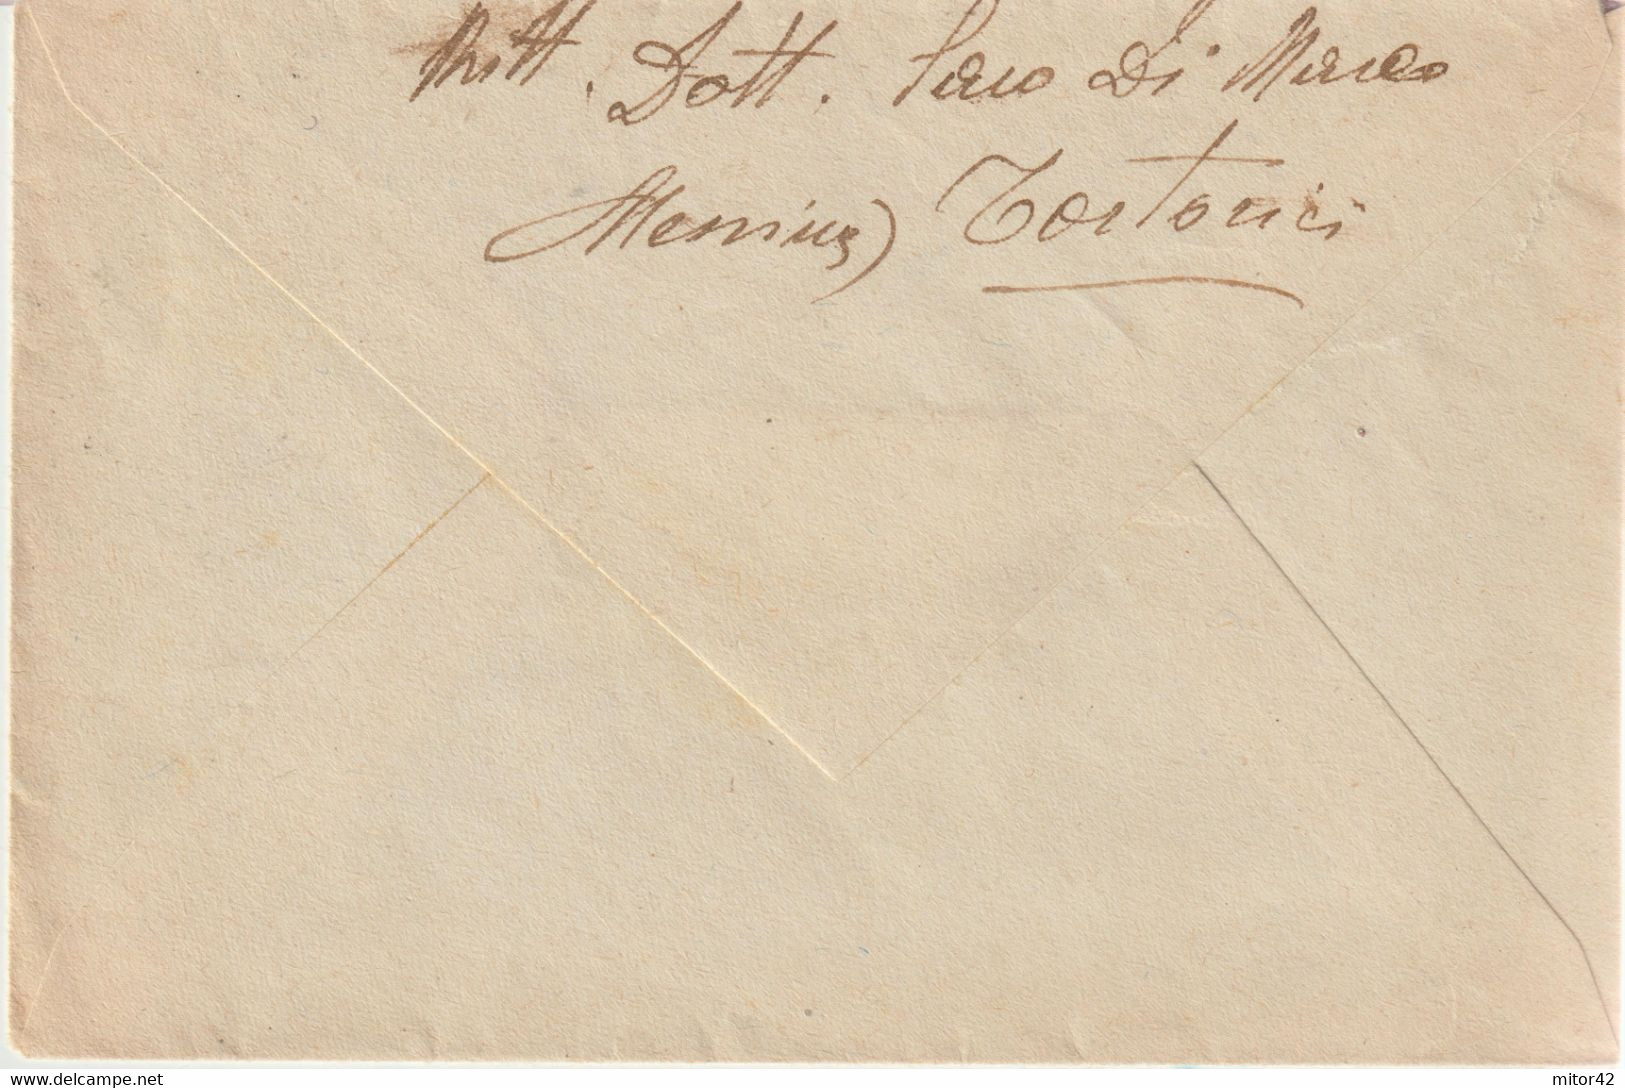 Mitt. Dott. Saro Di Marco
(Messina) Tortorici
www.delcampe.net
mitor42